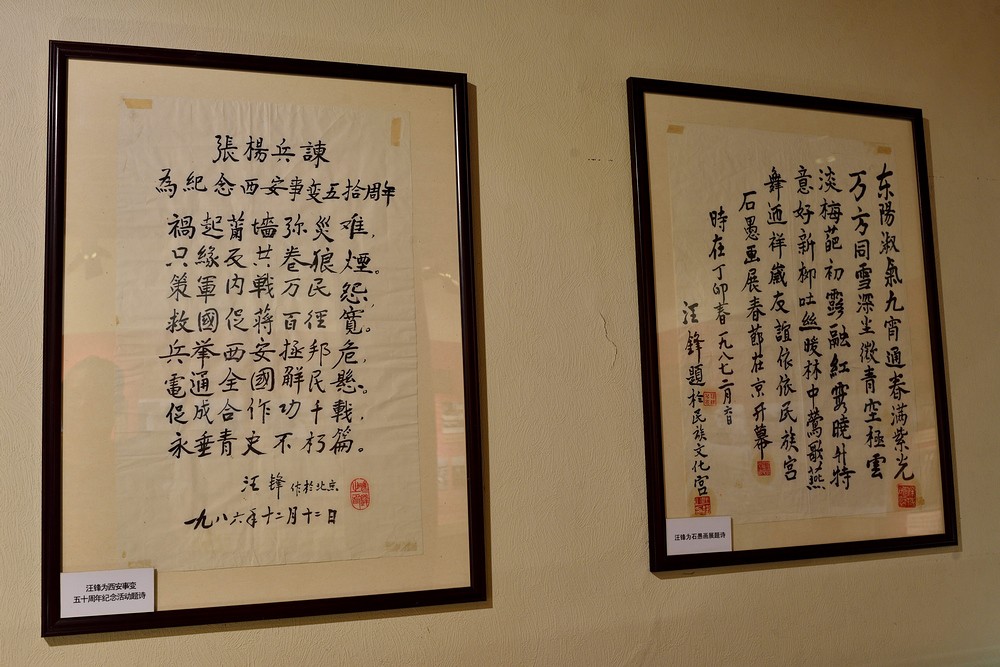 張楊兵諫
為紀念西安事变五拾周年
禍起蕭墻弥災难,
只緣反共卷狼煙。
策軍内戰万民怨,
救國促蔣百徑寬。
兵举西安拯邦危,
電通全國解民懸。
促成合作功千戟,
永垂青史不朽篇。
汪鋒 作於北京
一九八六年十二月十二日
汪锋为西安事变
五十周年纪念活动题诗
东陽淑氣九宵適春满紫光
万方同雪深尘徵青空極雲
淡梅葩初露融紅霞曉升特
意好新柳吐丝暖林中鶯歌燕
舞迎祥嵗友誼依依民族宮
石愚画展春節在京开幕
時在丁卯春一九八七二月六日
汪鋒題於民族文化宮
汪锋为石愚画展题诗